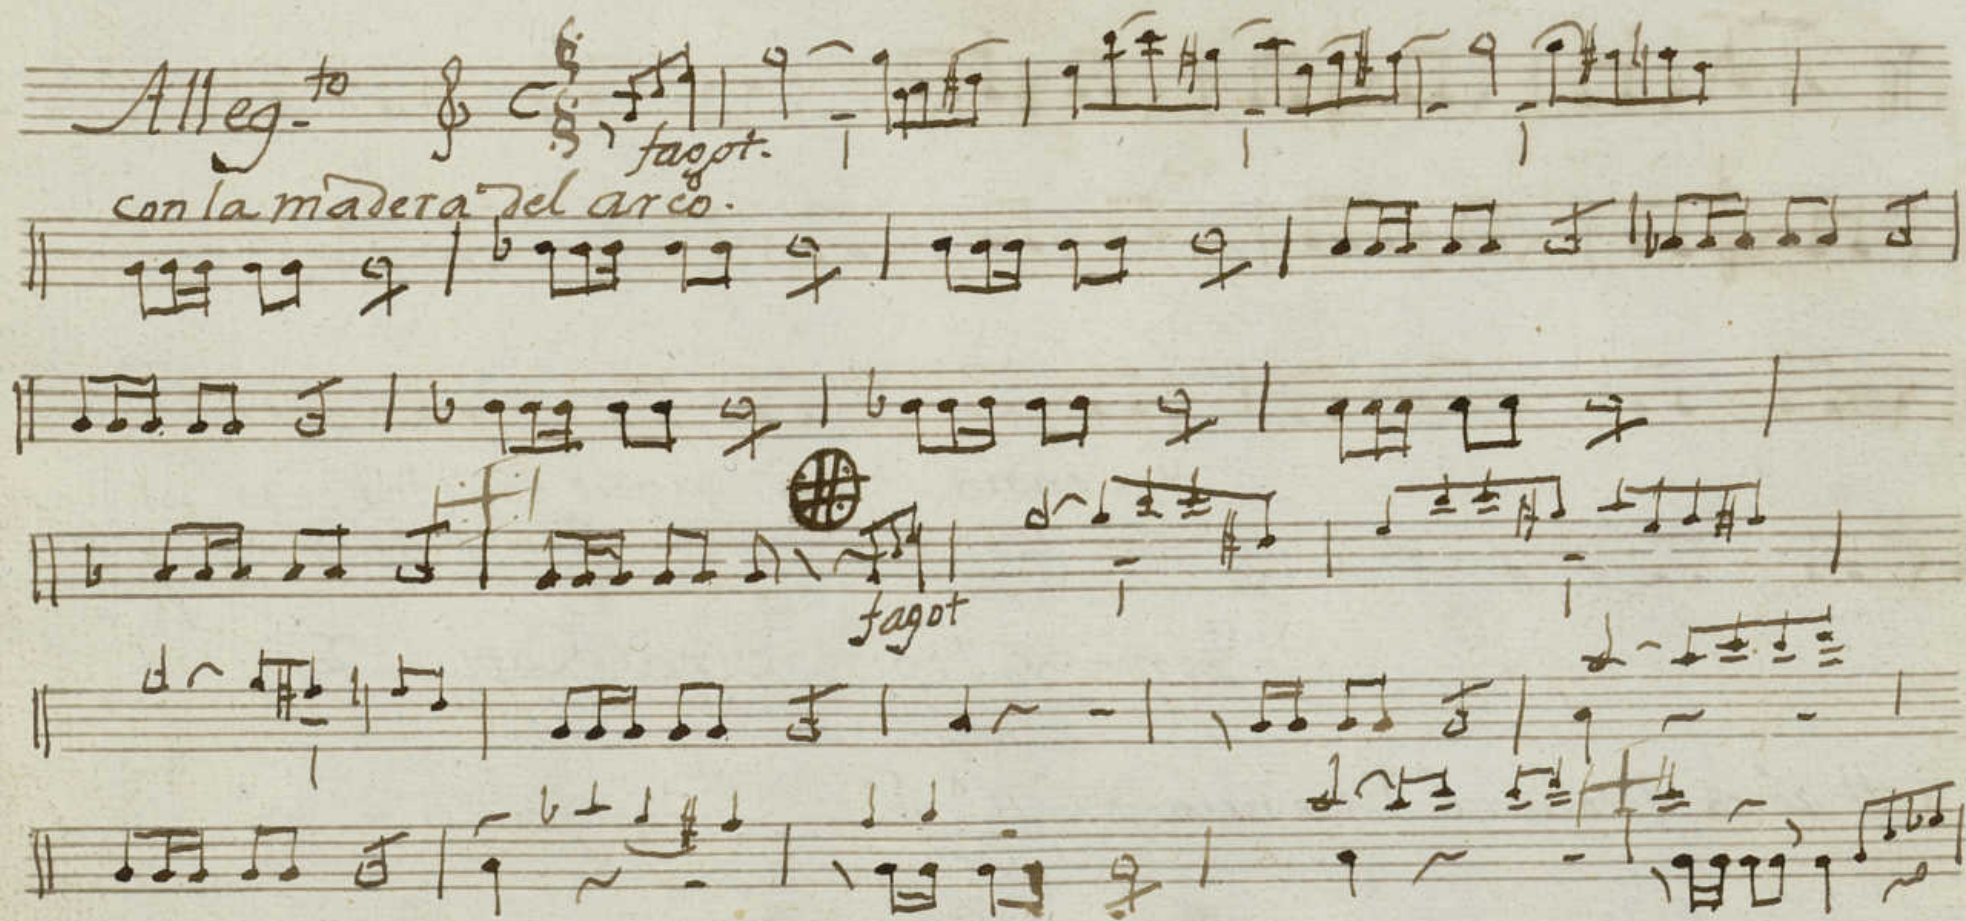 Alleg.to
fagot.
con la madera del arco.
fagot